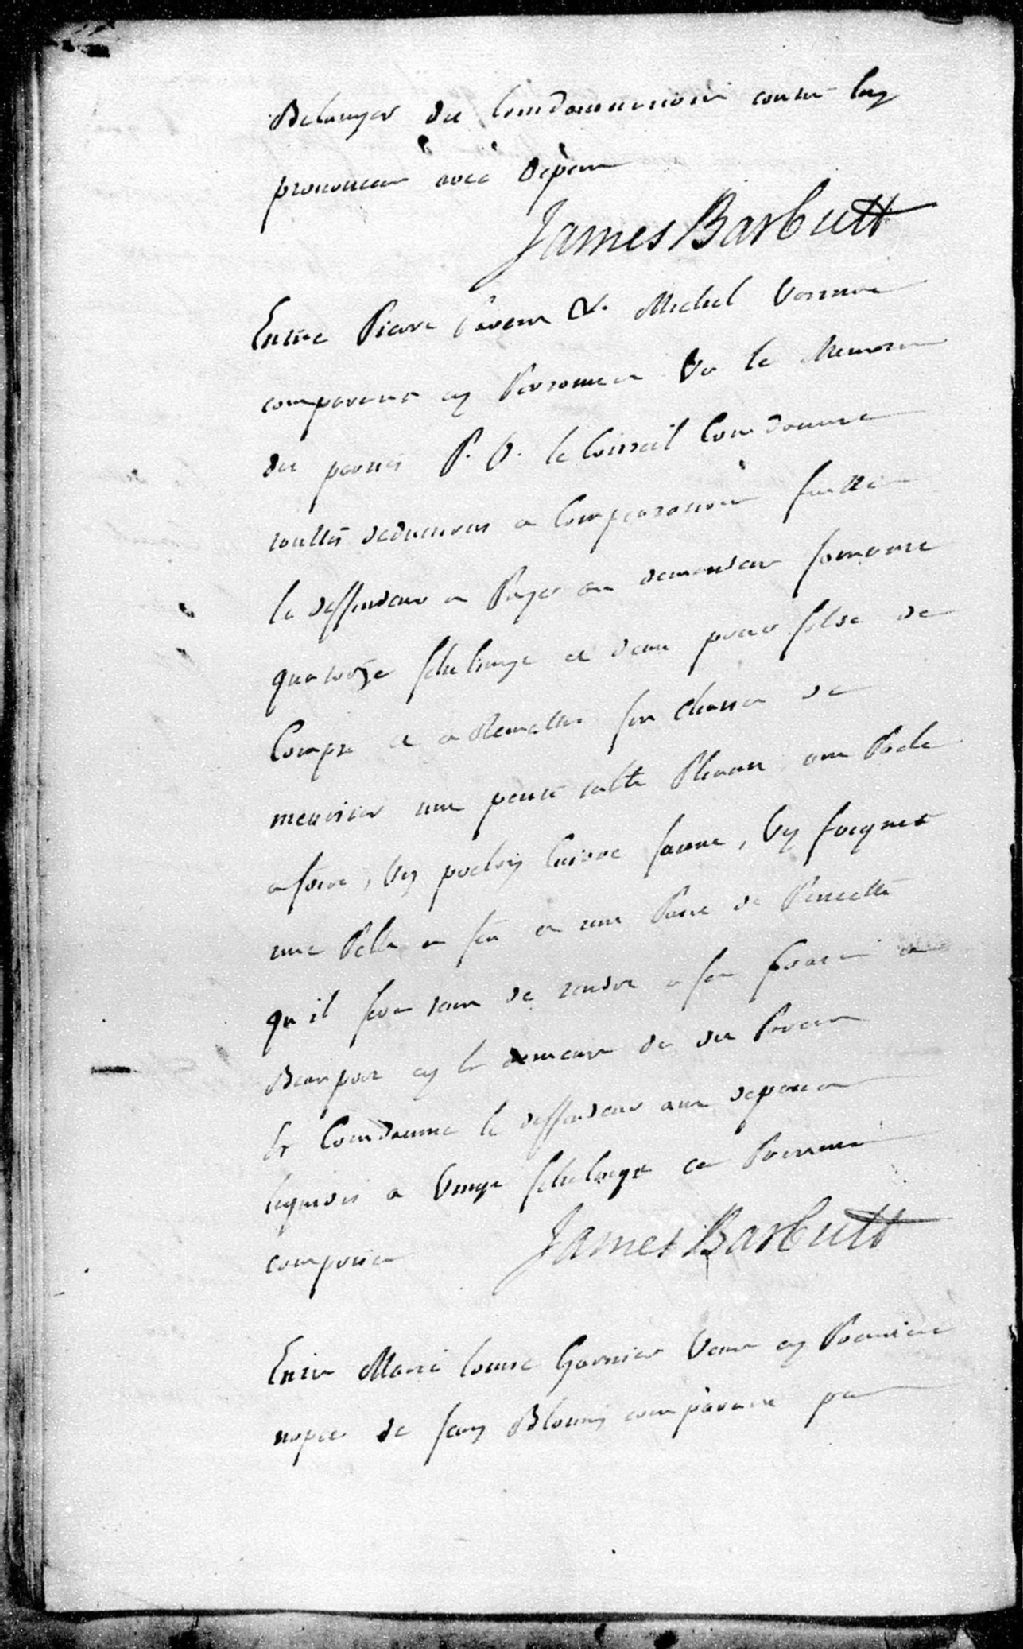 Belanger des Condamnations contre luy
prononcees avec depens
James Barbutt
Entre Pierre & Michel
comparant en Personnes Vû le Memoire
des parties P. V. le Conseil Condamne
touttes deductions et Compensations faittes
le deffendeur a Payer au demandeur somme
quatorze schelings et demi pour solde de
Compte et a Remettre
une petite table une Poele
a frire, un cuivre jaune, Un
une Pelle a feu et une Paire de Pincette
qu'il sera tenu de rendre a ses fraix a
Beauport en la demeure de
Et Condamne le deffendeur aux depens
liquidés a Vingt schelings ce
comprise
James Barbutt
Entre Marie Louise Garnier Veuve en Premiere
nopces de comparante par